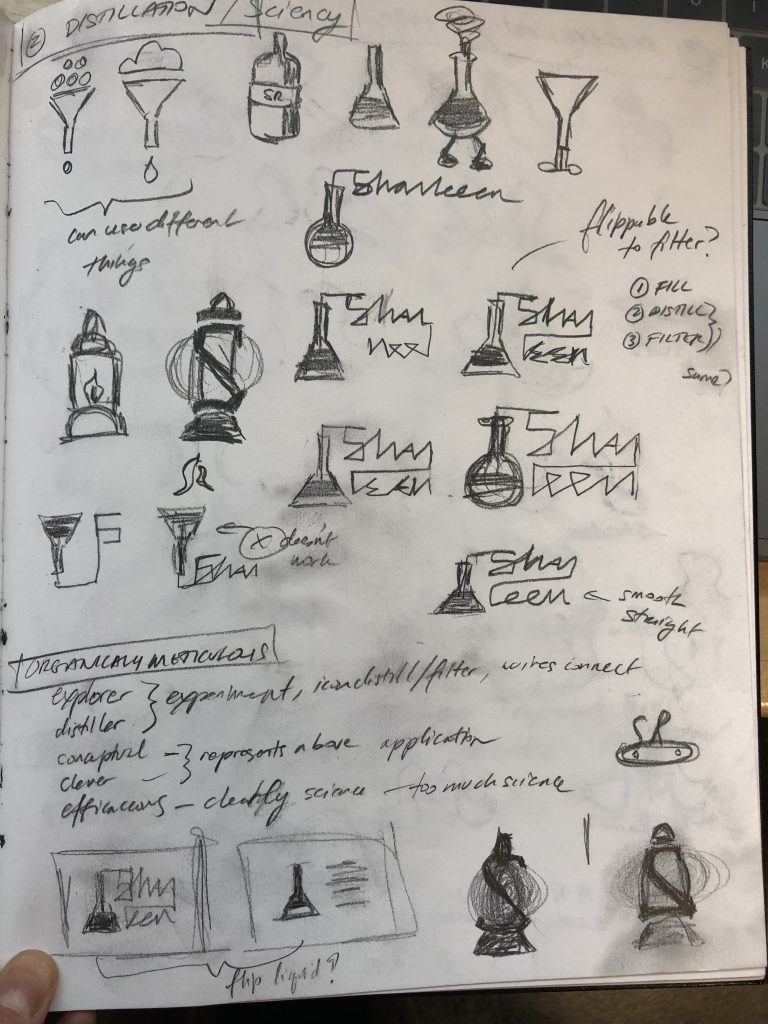 ② DISTILLATION / Sciency
SR
can use different
things
Sharleen
flippable
to filter?
① FILL
② DISTILL
③ FILTER
same?
Shar
Shar
leen
Shar
leen
Shar
leen
SR
F
Shar
ⓧ doesn't
work
Shar
leen ← smooth
straight
ORGANICALLY METICULOUS
explorer } experiment, icon distill/filter, wires connect
distiller
conceptual - } represents above application
clever -
efficacious - clearly science - too much science
SR
Shar
leen
flip liquid?